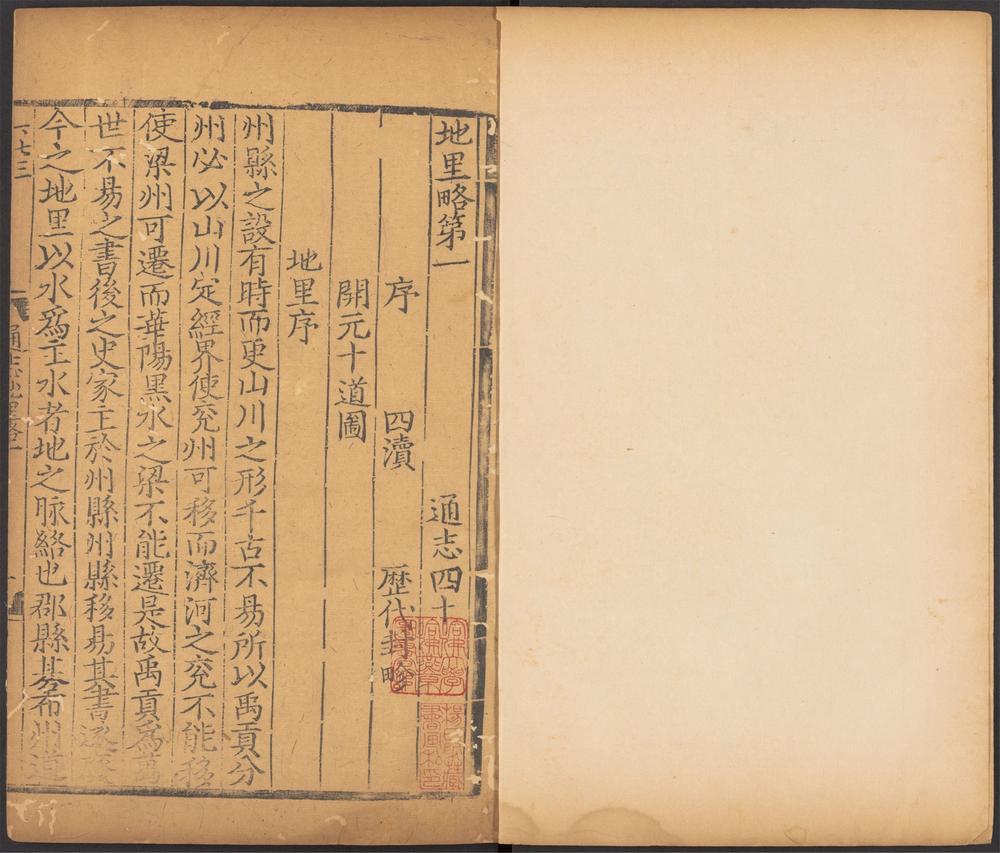 地里略第一 通志四十
序 四瀆 歷代封畛
開元十道圖
地里序
州縣之設有時而更山川之形千古不易所以禹貢分
州必以山川定經界使兖州可移而濟河之兖不能移
使梁州可遷而華陽黑水之梁不能遷是故禹貢為萬
世不易之書後之史家主於州縣州縣移易其書遂廢
今之地里以水為主水者地之脉絡也郡縣棊布州道